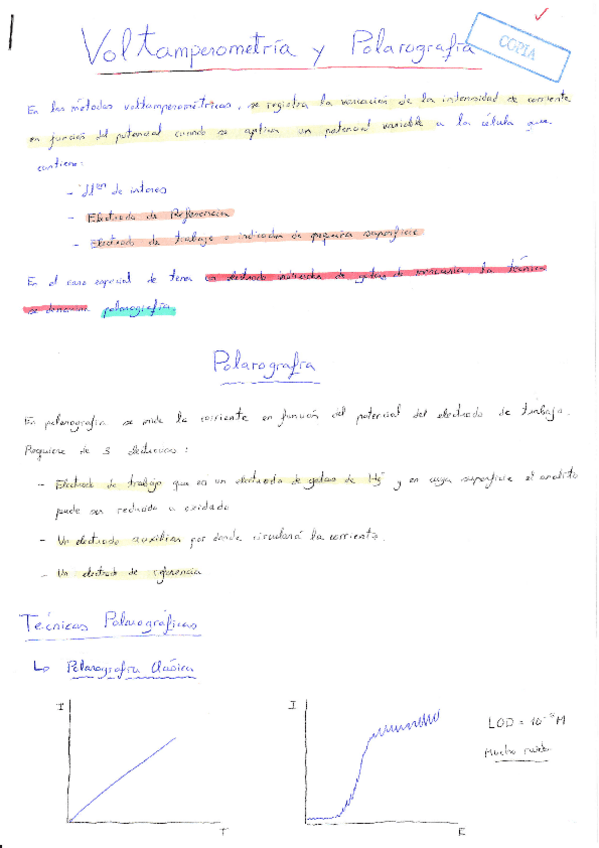 Voltamperometría y Polarografía
COPIA
En los métodos voltamperométricos, se registra la variación de la intensidad de corriente
en función del potencial cuando se aplica un potencial variable a la célula que
contiene:
- de interés
- Electrodo de Referencia
- Electrodo de trabajo o indicador de pequeña superficie
En el caso especial de tener un electrodo indicador de gotas de mercurio, la técnica
se denomina polarografía.
Polarografía
En polarografía se mide la corriente en función del potencial del electrodo de trabajo.
Requiere de 3 electrodos:
- Electrodo de trabajo que es un electrodo de gotas de Hg y en cuya superficie el analito
puede ser reducido u oxidado
- Un electrodo auxiliar por donde circulará la corriente.
- Un electrodo de referencia
Técnicas Polarográficas
Polarografía Clásica
I
T
I
E
LOD = M
Mucho ruido